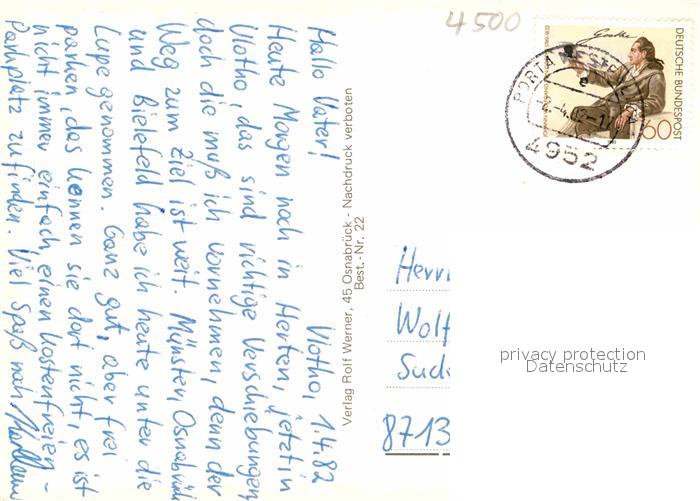 Vlotho, 1.4.82
Hallo Vater!
Heute Morgen noch in Herten, jetzt in
Vlotho, das sind richtige Verschiebungen,
doch die muß ich vornehmen, denn der
Weg zum Ziel ist weit. Münster, Osnabrück
und Bielefeld habe ich heute unter die
Lupe genommen. Ganz gut, aber frei
parken, das kennen sie dort nicht, es ist
nicht immer einfach, einen kostenfreien -
Parkplatz zu finden. Viel Spaß noch
Verlag Rolf Werner, 45 Osnabrück - Nachdruck verboten
Best.-Nr. 22
4500
Goethe
DEUTSCHE BUNDESPOST
60
PORTA WESTF
e
4952
Herrn
Wolf
Sude
8713
privacy protection
Datenschutz